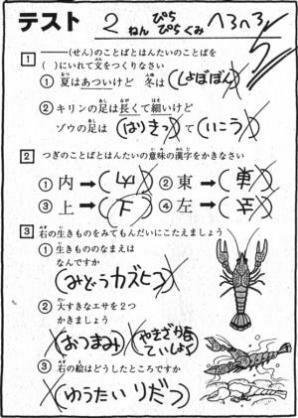 テスト 2ねん ぴらぴらくみ へろへろ
1 ――(せん)のことばとはんたいのことばを
( )にいれて文をつくりなさい
① 夏はあついけど 冬は(しょぼぼん)
② キリンの足は長くて細いけど
ゾウの足は(はりきっ)て(いこう)
2 つぎのことばとはんたいの意味の漢字をかきなさい
① 内→( ) ② 東→( )
③ 上→(下) ④ 左→( )
3 右の生きものをみてもんだいにこたえましょう
① 生きもののなまえは
なんですか
(みどうカズヒコ)
② 大すきなエサを2つ
かきましょう
(おつまみ)(やきざかな ていしょく)
③ 右の絵はどうしたところですか
(ゆうたい りだつ)